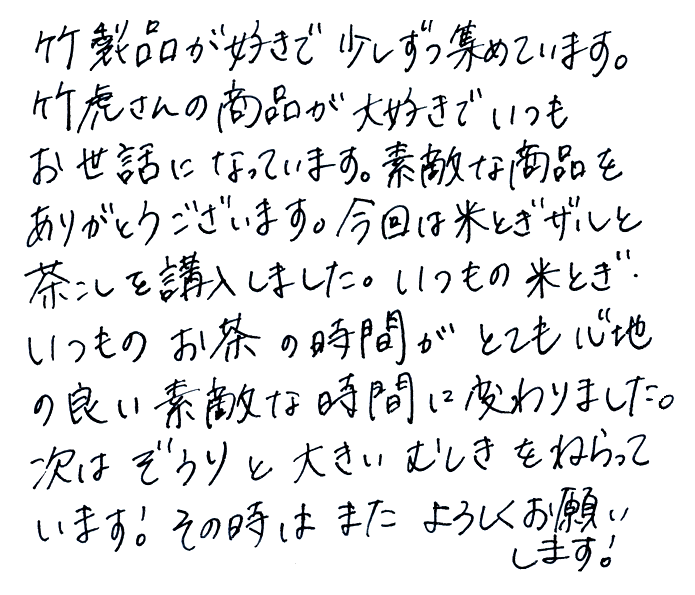 竹製品が好きで少しずつ集めています。
竹虎さんの商品が大好きでいつも
お世話になっています。素敵な商品を
ありがとうございます。今回は米とぎザルと
茶こしを講入しました。いつもの米とぎ・
いつものお茶の時間がとても心地
の良い素敵な時間に変わりました。
次はぞうりと大きいむしきをねらって
います!その時はまたよろしくお願い
します!